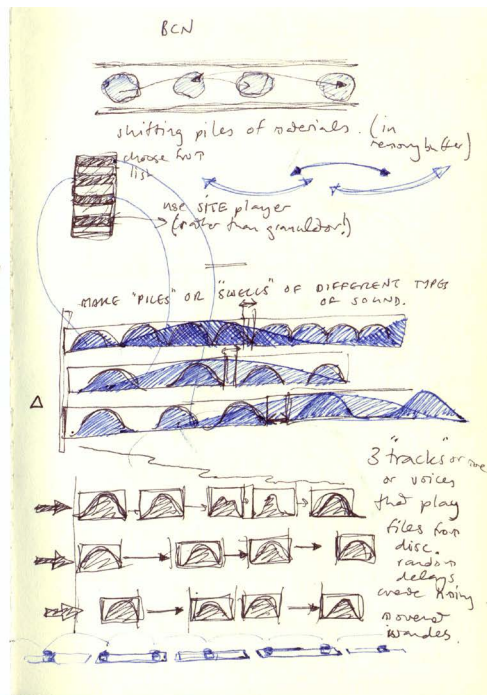 BCN
shifting piles of materials. (in
memory buffer)
choose from
list
use SITE player
(rather than granulator!)
MAKE "PILES" OR "SWELLS" OF DIFFERENT TYPES
OF SOUND.
3 "tracks" or
or voices
that play
files from
disc.
random
delays
create rising